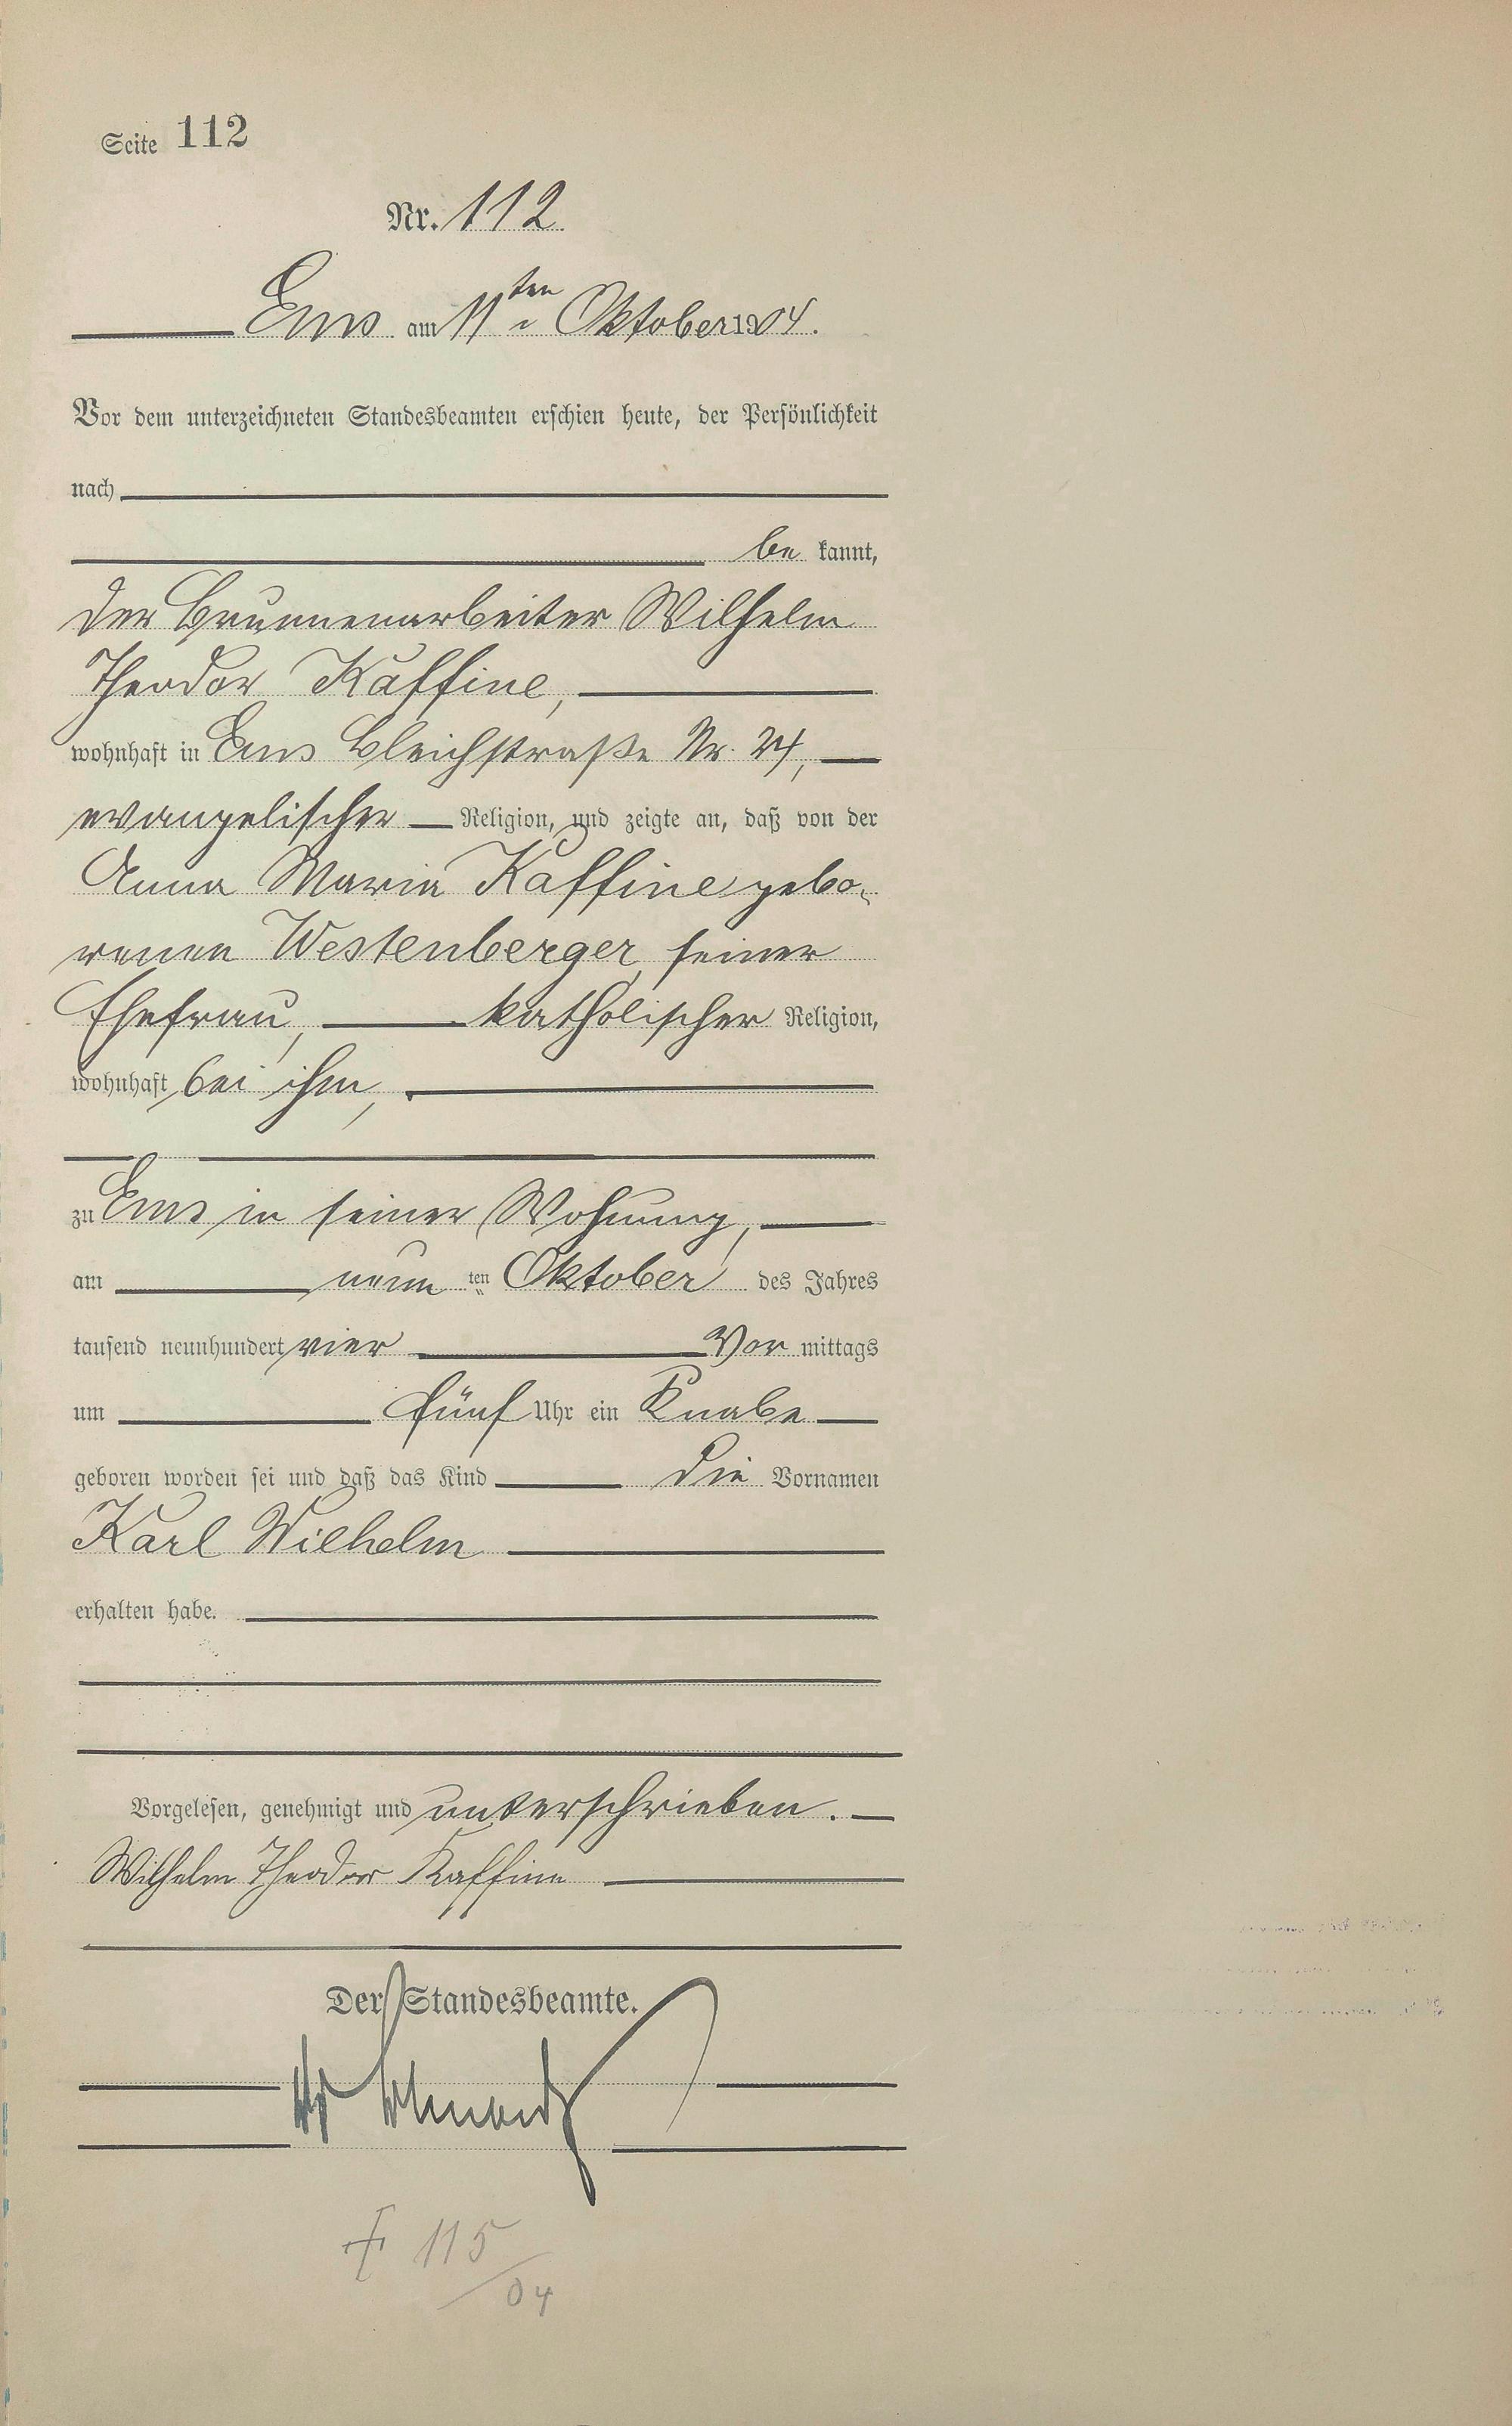 Seite 112
Nr. 112
Ems am 11ten Oktober 1904.
Vor dem unterzeichneten Standesbeamten erschien heute, der Persönlichkeit
nach
be kannt,
der Brunnenarbeiter Wilhelm
Theodor Kaffine,
wohnhaft in Ems Bleichstraße Nr. 24,
evangelischer Religion, und zeigte an, daß von der
Anna Maria Kaffine gebo-
renen Westenberger, seiner
Ehefrau, katholischer Religion,
wohnhaft bei ihm,
zu Ems in seiner Wohnung,
am neun ten Oktober des Jahres
tausend neunhundert vier Vor mittags
um fünf Uhr ein Knabe
geboren worden sei und daß das Kind die Vornamen
Karl Wilhelm
erhalten habe.
Vorgelesen, genehmigt und unterschrieben.
Wilhelm Theodor Kaffine
Der Standesbeamte.
115
/04